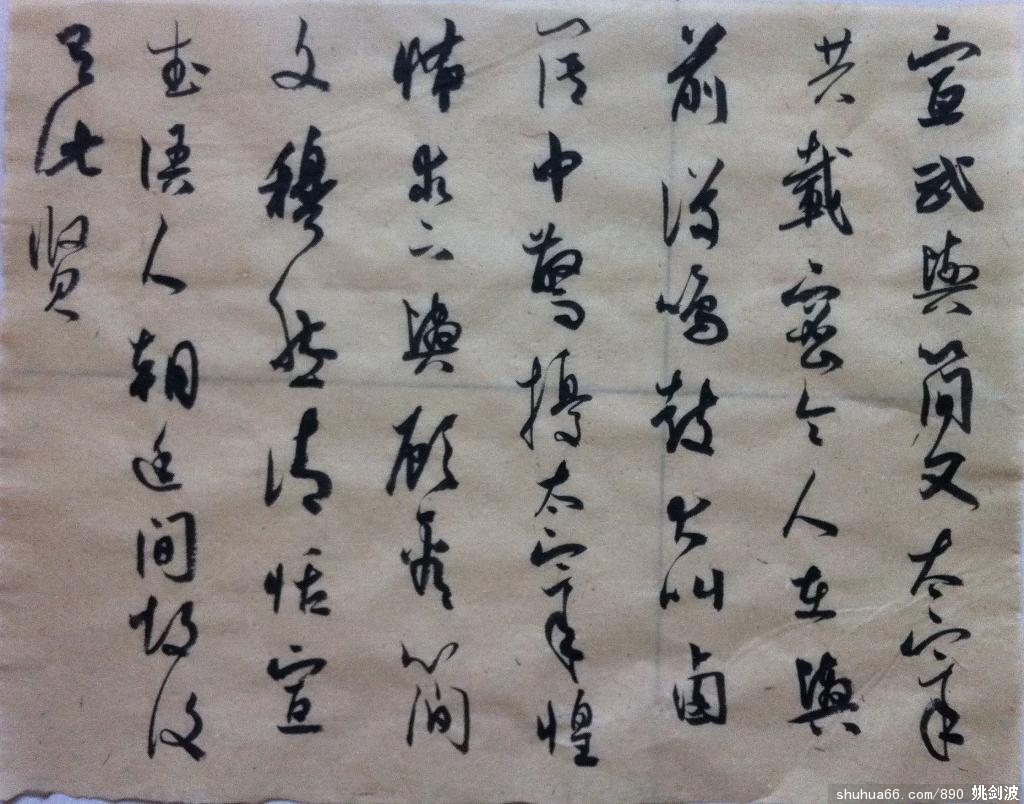 宣武與簡文太宰
共載密令人在輿
前後鳴鼓大叫鹵
簿中驚擾太宰惶
怖求下輿顧看簡
文穆然清恬宣
武語人朝廷間故復
有此賢
shuhua66.com/890 姚剑波